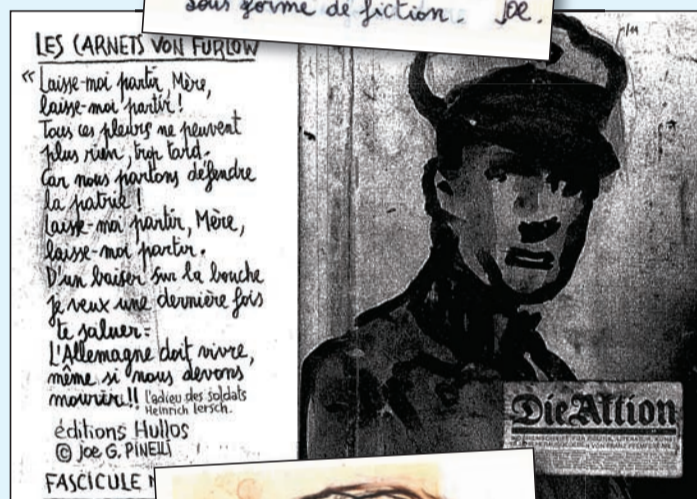 sous forme de fiction. Joe.
LES CARNETS VON FURLOW
« Laisse-moi partir, Mère,
laisse-moi partir !
Tous ces pleurs ne peuvent
plus rien, trop tard.
Car nous partons défendre
la patrie !
Laisse-moi partir, Mère,
laisse-moi partir.
D'un baiser sur la bouche
je veux une dernière fois
te saluer :
L'Allemagne doit vivre,
même si nous devons
mourir !! l'adieu des soldats
Heinrich Lersch.
éditions Hullos
© Joe G. PINELLI
FASCICULE
Die Aktion
WOCHENSCHRIFT FÜR POLITIK, LITERATUR, KUNST
VON FRANZ PFEMFERT